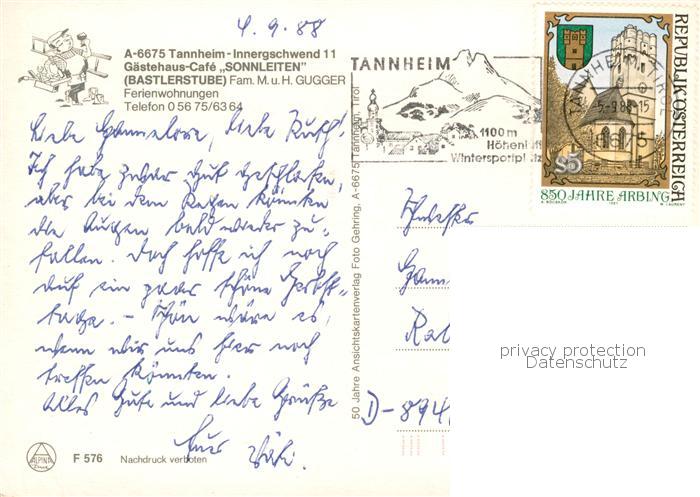 4.9.88
A-6675 Tannheim-Innergschwend 11
Gästehaus-Café „SONNLEITEN"
(BASTLERSTUBE) Fam. M. u. H. GUGGER
Ferienwohnungen
Telefon 0 56 75/63 64
Liebe Hannelore, liebe Ruth!
Ich habe zwar gut geschlafen,
aber bei dem Regen könnten
die Augen bald wieder zu-
fallen. Doch hoffe ich noch
auf ein paar schöne Herbst-
tage. - Schön wäre es,
wenn wir uns hier noch
treffen könnten.
Alles Gute und liebe Grüße
Eure
ALPINA
F 576
Nachdruck verboten
50 Jahre Ansichtskartenverlag Foto Gehring, A-6675 Tannheim, Tirol
TANNHEIM
1100 m
Höhenluft
Wintersportplatz
TANNHEIM, TIROL
-5.-9.88-15
6675
REPUBLIK ÖSTERREICH
S5
850 JAHRE ARBING
1987
D-894
privacy protection
Datenschutz